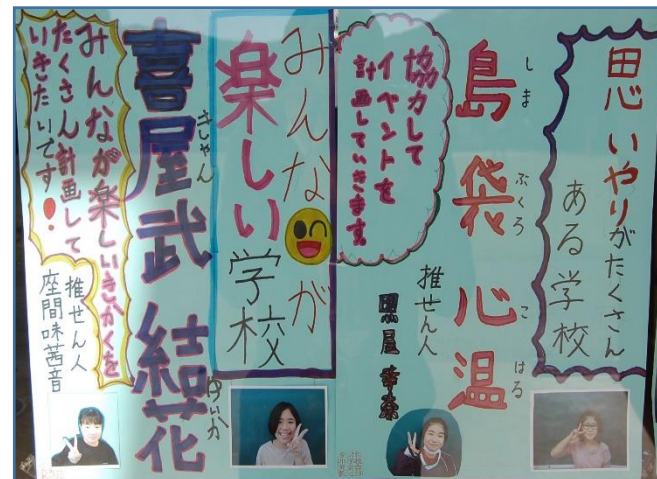 思いやりがたくさん
ある学校
島袋心温
しまぶくろ こはる
協力して
イベントを
計画していきます。
推せん人
みんなが
楽しい学校
喜屋武 結花
きしゃん ゆいか
みんなが楽しいきかくを
たくさん計画して
いきたいです!
推せん人
座間味茜音